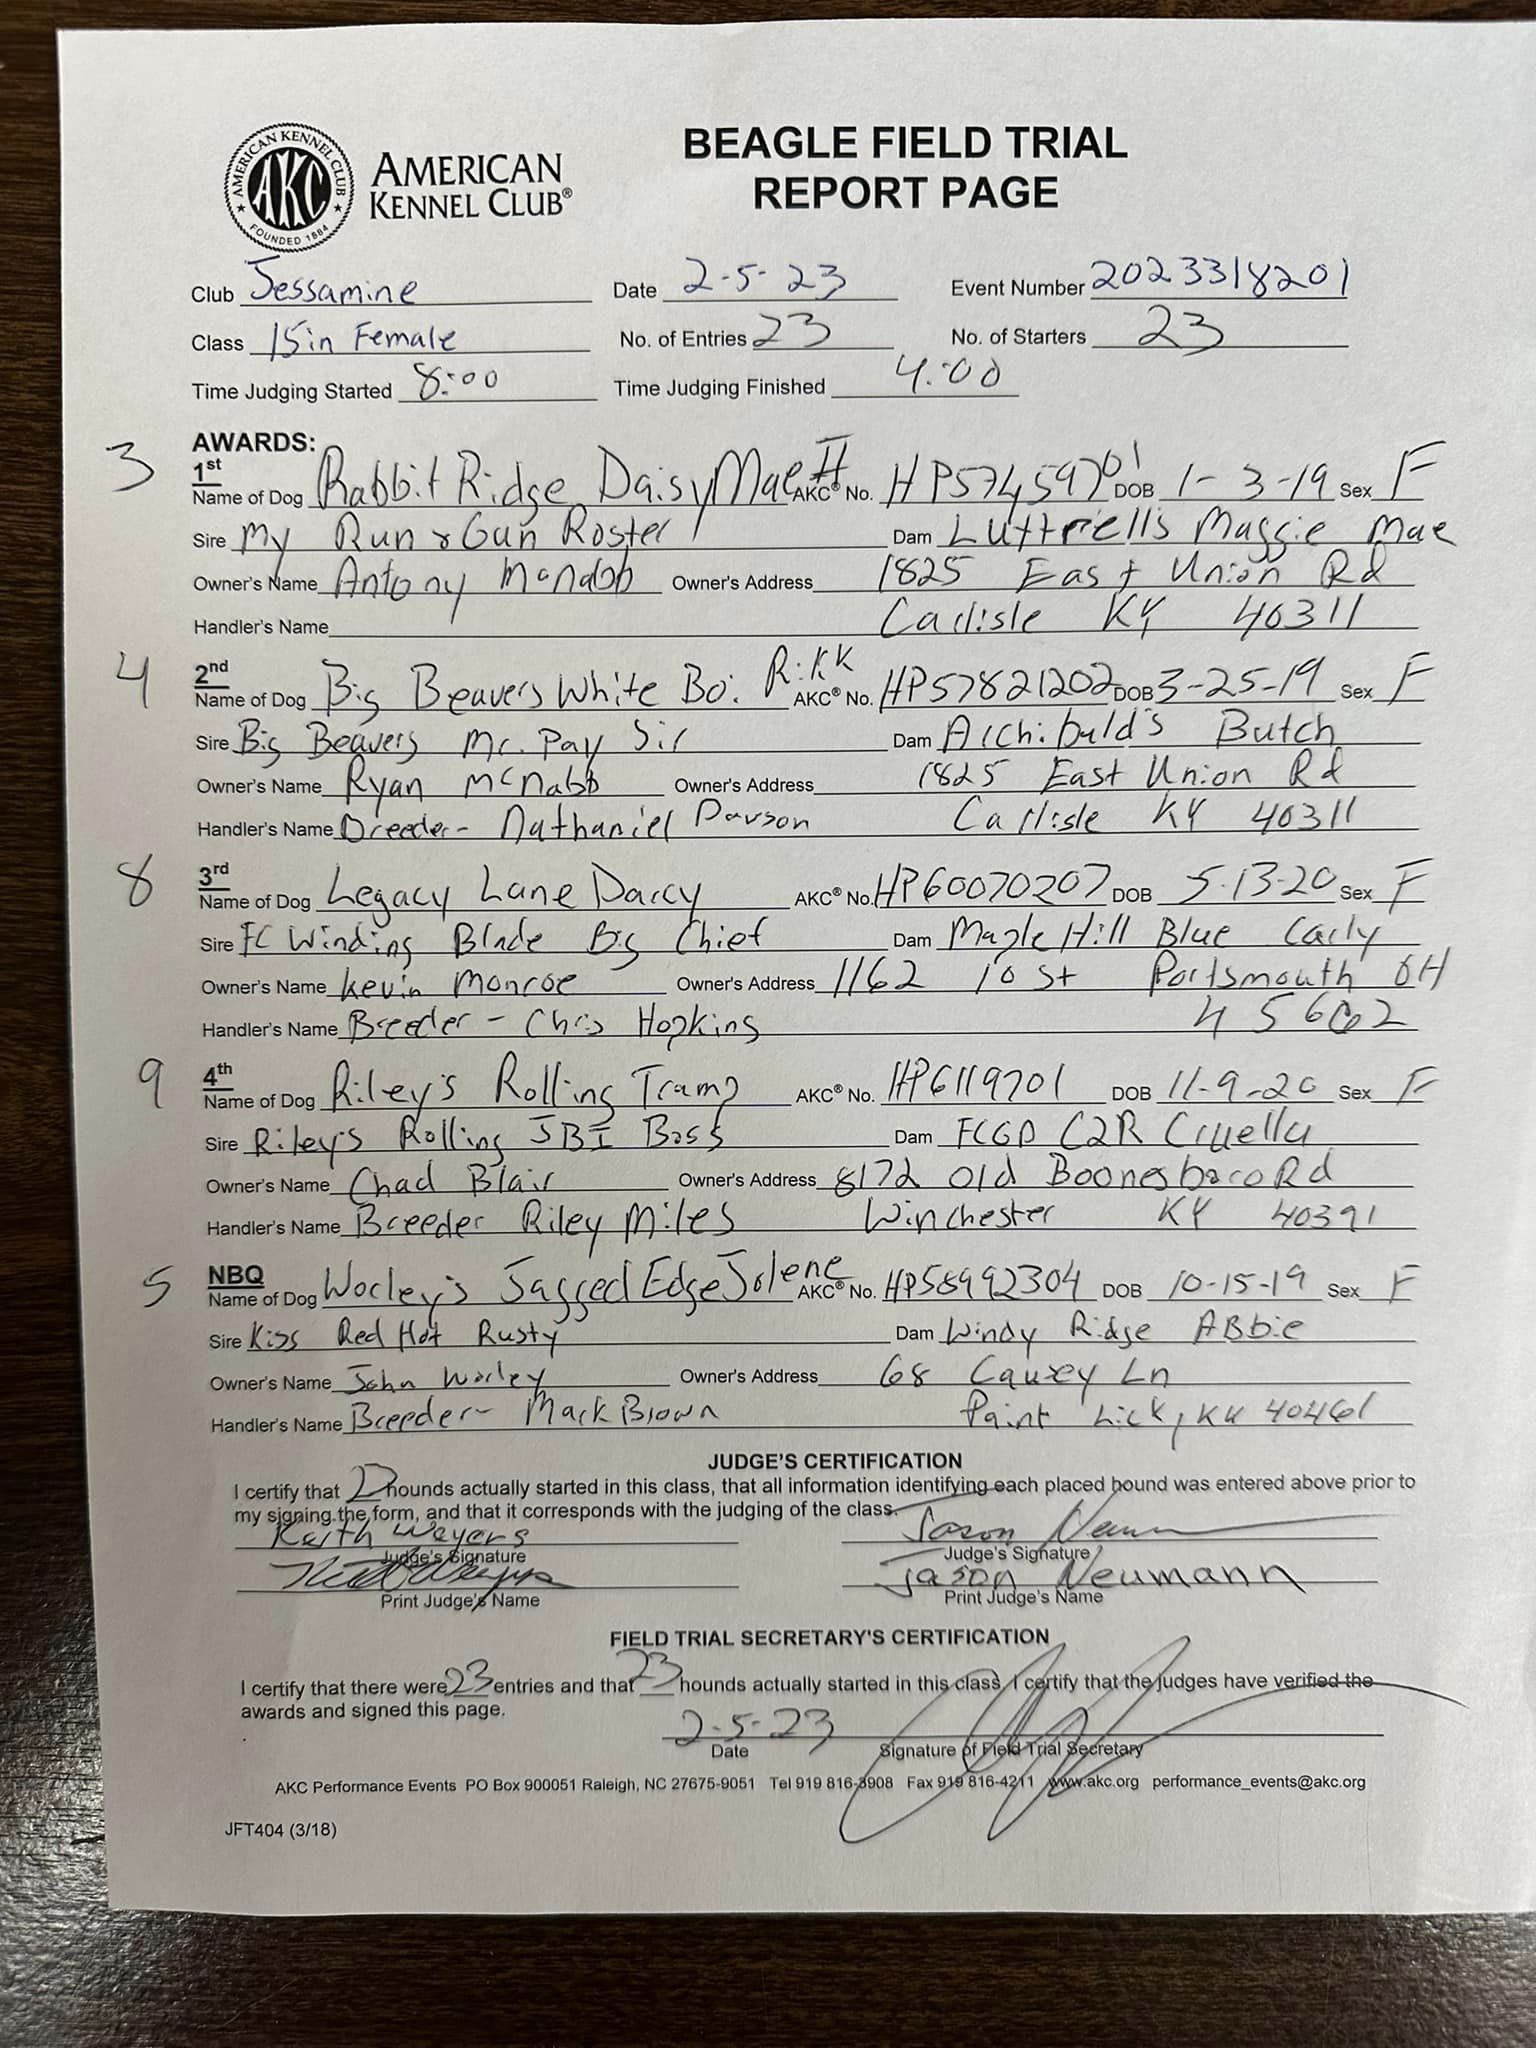 AMERICAN KENNEL CLUB
AKC
FOUNDED 1884
AMERICAN KENNEL CLUB®
BEAGLE FIELD TRIAL
REPORT PAGE
Club Jessamine Date 2-5-23 Event Number 2023318201
Class 15in Female No. of Entries 23 No. of Starters 23
Time Judging Started 8:00 Time Judging Finished 4:00
AWARDS:
3 1st
Name of Dog Rabbit Ridge Daisy Mae II AKC® No. HP57459701 DOB 1-3-19 Sex F
Sire My Run & Gun Roster Dam Luttrell's Maggie Mae
Owner's Name Antony McNabb Owner's Address 1825 East Union Rd
Handler's Name Carlisle KY 40311
4 2nd
Name of Dog Big Beavers White Boi Rikk AKC® No. HP57821202 DOB 3-25-19 Sex F
Sire Big Beavers Mr. Pay Sir Dam Archibald's Butch
Owner's Name Ryan McNabb Owner's Address 1825 East Union Rd
Handler's Name Breeder- Nathaniel Davson Carlisle KY 40311
8 3rd
Name of Dog Legacy Lane Darcy AKC® No. HP60070207 DOB 5-13-20 Sex F
Sire FC Winding Blade Big Chief Dam Maple Hill Blue Carly
Owner's Name Kevin Monroe Owner's Address 1162 10 St Portsmouth OH
Handler's Name Breeder - Chris Hopkins 45662
9 4th
Name of Dog Riley's Rolling Tramp AKC® No. HP6119701 DOB 11-9-20 Sex F
Sire Riley's Rolling JBI Boss Dam FCGD C2R Cruella
Owner's Name Chad Blair Owner's Address 8172 Old Boonesboro Rd
Handler's Name Breeder Riley Miles Winchester KY 40391
5 NBQ
Name of Dog Worley's Jagged Edge Jolene AKC® No. HP58992304 DOB 10-15-19 Sex F
Sire Kiss Red Hot Rusty Dam Windy Ridge ABbie
Owner's Name John Worley Owner's Address 68 Causey Ln
Handler's Name Breeder- Mark Brown Paint Lick, KY 40461
JUDGE'S CERTIFICATION
I certify that hounds actually started in this class, that all information identifying each placed hound was entered above prior to
my signing the form, and that it corresponds with the judging of the class.
Keith Weyers Jason
Judge's Signature Judge's Signature
Jason Neumann
Print Judge's Name Print Judge's Name
FIELD TRIAL SECRETARY'S CERTIFICATION
I certify that there were 23 entries and that 23 hounds actually started in this class. I certify that the judges have verified the
awards and signed this page.
2-5-23
Date Signature of Field Trial Secretary
AKC Performance Events PO Box 900051 Raleigh, NC 27675-9051 Tel 919 816-3908 Fax 919 816-4211 www.akc.org performance_events@akc.org
JFT404 (3/18)